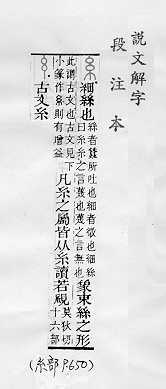 說文解字
段注本
細絲也絲者蠶所吐也細者微也細絲曰糸糸之言蔑也蔑之言無也象束絲之形
此謂古文也古文見下小篆作糸則有增益凡糸之屬皆从糸讀若覛莫狄切十六部
古文糸
(糸部 P.650)